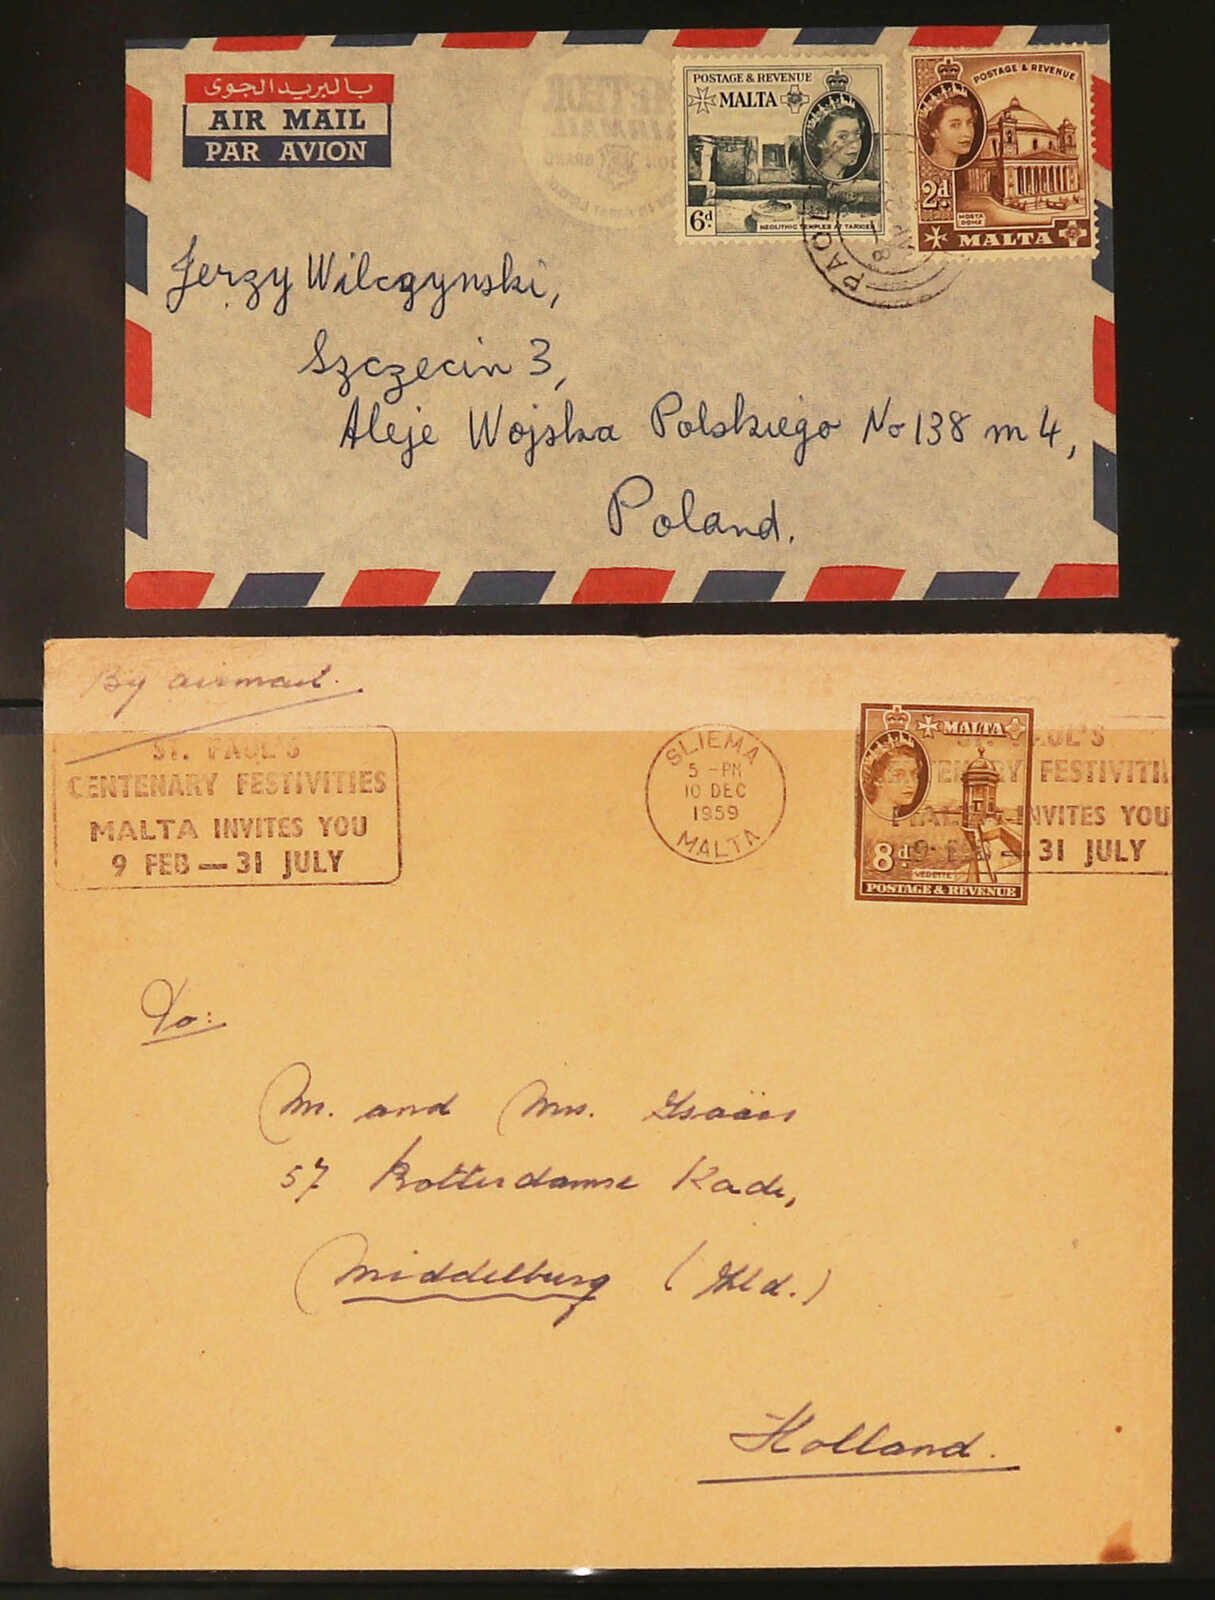 بالبريد الجوى
AIR MAIL
PAR AVION
POSTAGE & REVENUE
MALTA
6d
NEOLITHIC TEMPLES AT TARXIEN
POSTAGE & REVENUE
2d
MOSTA DOME
MALTA
PAOLA
Jerzy Wilczynski,
Szczecin 3,
Aleje Wojska Polskiego No 138 m 4,
Poland.
By airmail.
ST. PAUL'S
CENTENARY FESTIVITIES
MALTA INVITES YOU
9 FEB — 31 JULY
SLIEMA
5 - PM
10 DEC
1959
MALTA
MALTA
8d
VEDETTE
POSTAGE & REVENUE
ST. PAUL'S
CENTENARY FESTIVITI
MALTA INVITES YOU
9 FEB — 31 JULY
To:
M. and Mrs. Isaäcs
57 Rotterdamse Kade,
Middelburg (Zld.)
Holland.